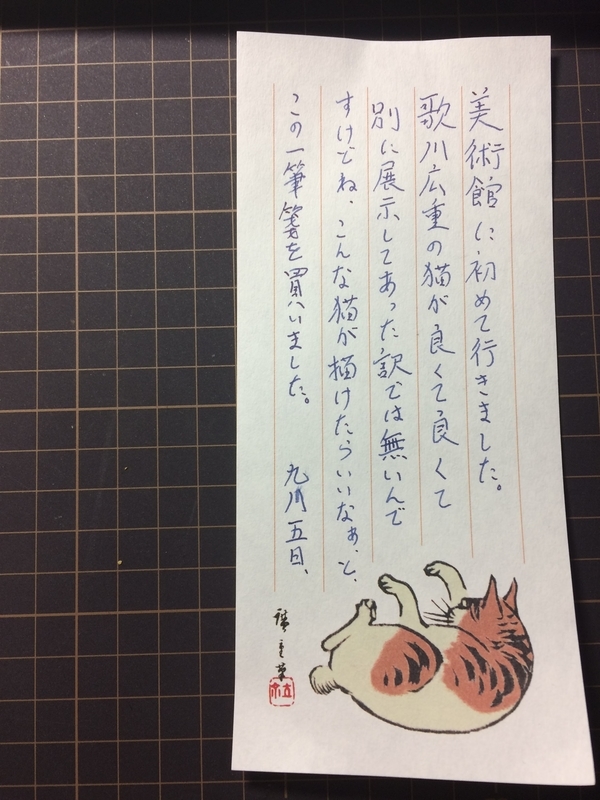 美術館に初めて行きました。
歌川広重の猫が良くて良くて
別に展示してあった訳では無いんで
すけどね、こんな猫が描けたらいいなぁ、と、
この一筆箋を買いました。 九月五日、